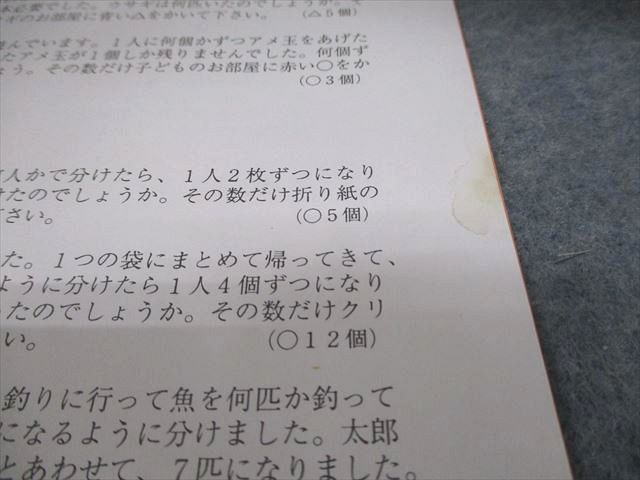 本必要でした。ウサギは何匹いたのでしょうか。
ギのお部屋に青い△をかいて下さい。 (△5個)
んでいます。1人に何個かずつアメ玉をあげた
たアメ玉が1個しか残りませんでした。何個ず
ょう。その数だけ子どものお部屋に赤い○をか
(○3個)
人かで分けたら、1人2枚ずつになり
けたのでしょうか。その数だけ折り紙の
さい。 (○5個)
た。1つの袋にまとめて帰ってきて、
ように分けたら1人4個ずつになり
ったのでしょうか。その数だけクリ
い。 (○12個)
釣りに行って魚を何匹か釣って
になるように分けました。太郎
とあわせて、7匹になりました。